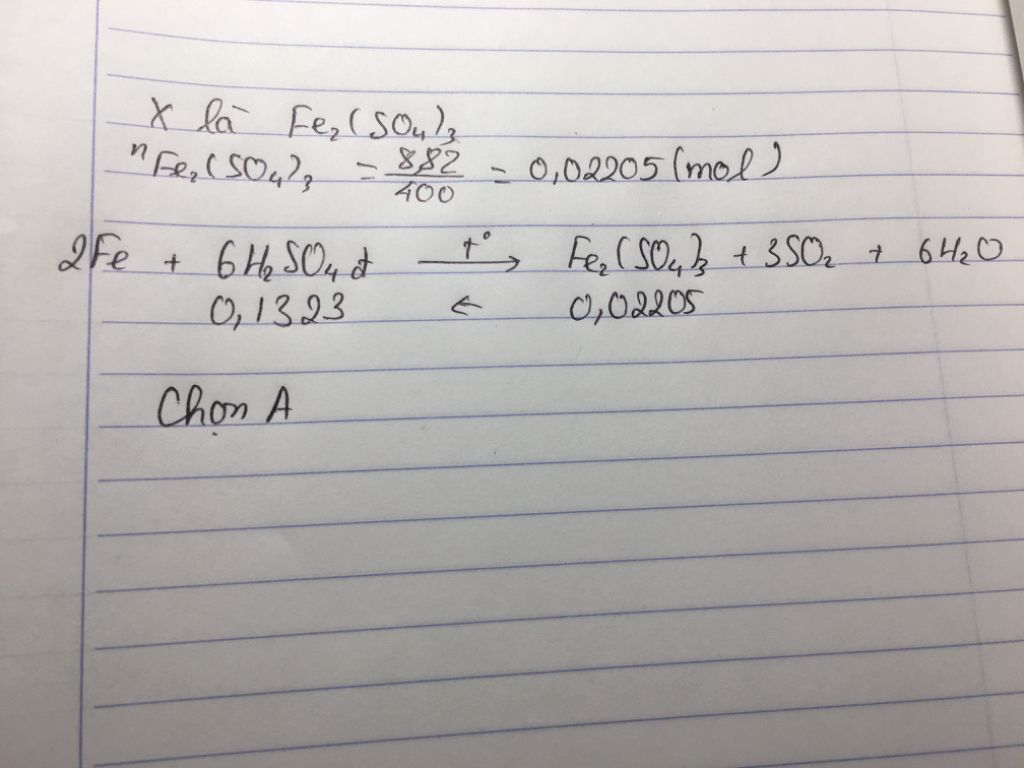 X là Fe₂(SO₄)₃
nFe₂(SO₄)₃ = 8,82/400 = 0,02205 (mol)
2Fe + 6H₂SO₄ đ t°→ Fe₂(SO₄)₃ + 3SO₂ + 6H₂O
0,1323 ← 0,02205
Chọn A